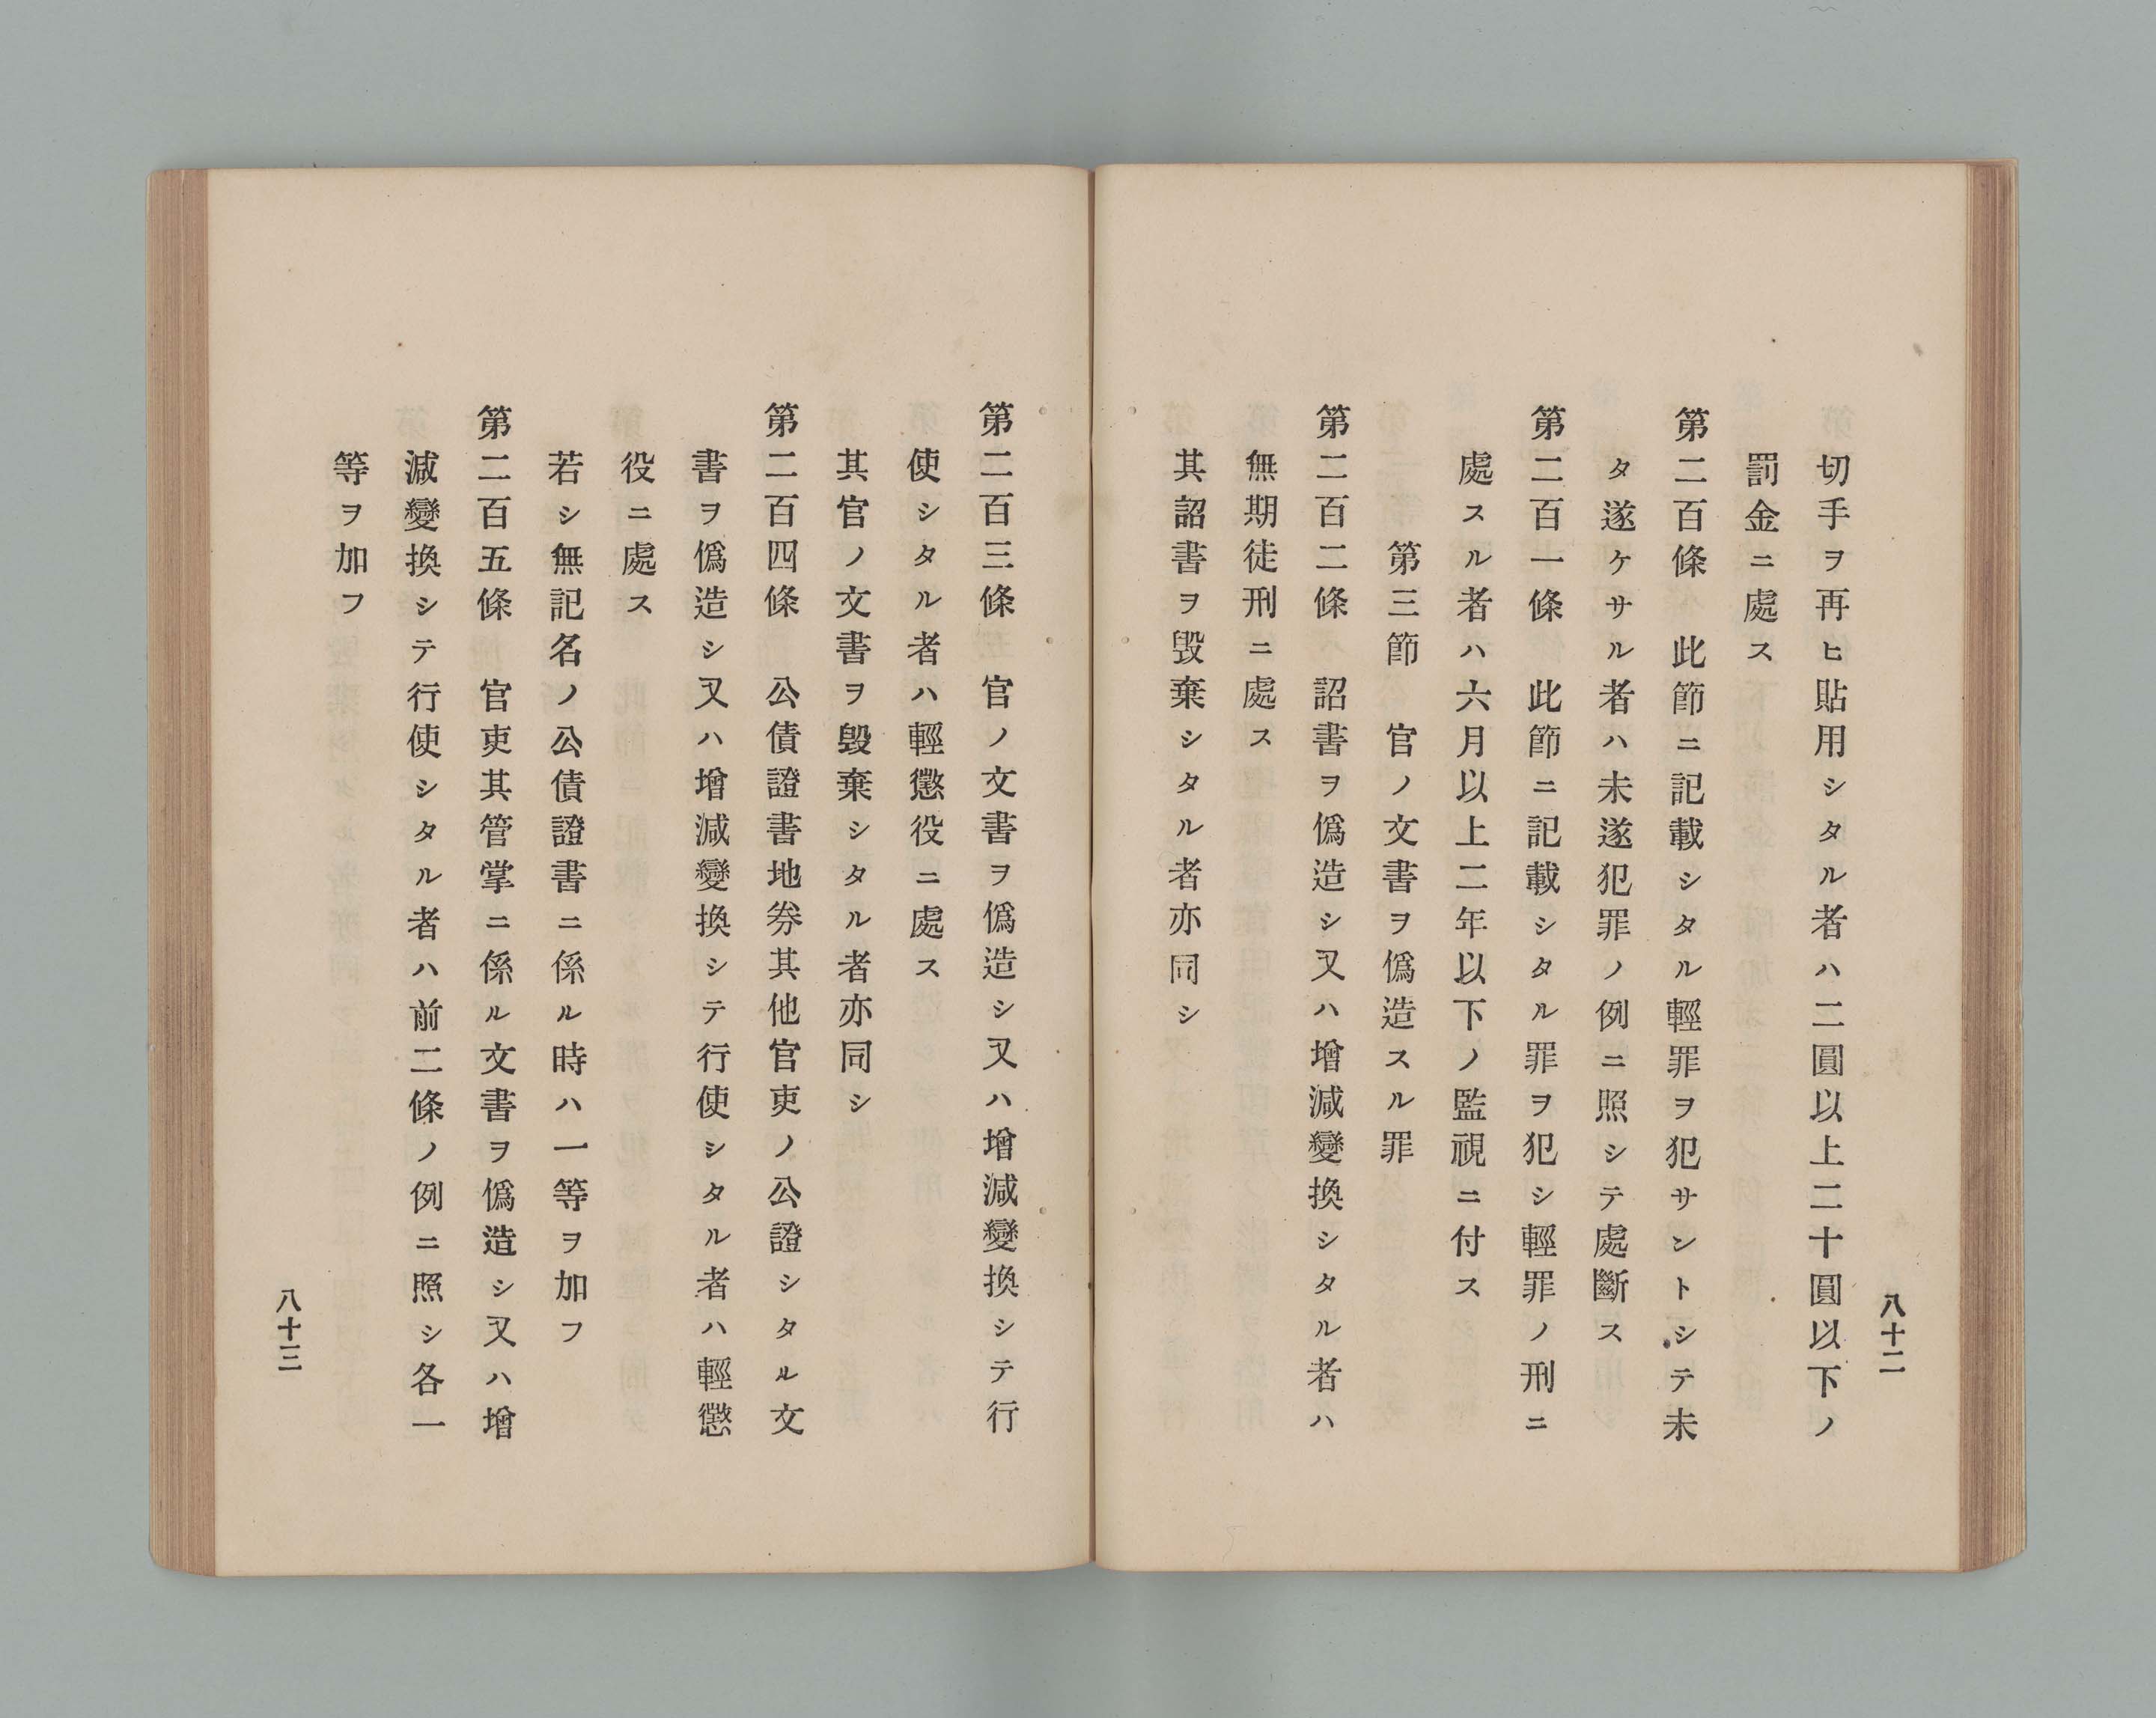 切手ヲ再ヒ貼用シタル者ハ二圓以上二十圓以下ノ
罰金ニ處ス
第二百條　此節ニ記載シタル輕罪ヲ犯サントシテ未
タ遂ケサル者ハ未遂犯罪ノ例ニ照シテ處斷ス
第二百一條　此節ニ記載シタル罪ヲ犯シ輕罪ノ刑ニ
處スル者ハ六月以上二年以下ノ監視ニ付ス
第三節　官ノ文書ヲ僞造スル罪
第二百二條　詔書ヲ僞造シ又ハ增減變換シタル者ハ
無期徒刑ニ處ス
其詔書ヲ毀棄シタル者亦同シ
八十二
第二百三條　官ノ文書ヲ僞造シ又ハ增減變換シテ行
使シタル者ハ輕懲役ニ處ス
其官ノ文書ヲ毀棄シタル者亦同シ
第二百四條　公債證書地券其他官吏ノ公證シタル文
書ヲ僞造シ又ハ增減變換シテ行使シタル者ハ輕懲
役ニ處ス
若シ無記名ノ公債證書ニ係ル時ハ一等ヲ加フ
第二百五條　官吏其管掌ニ係ル文書ヲ僞造シ又ハ增
減變換シテ行使シタル者ハ前二條ノ例ニ照シ各一
等ヲ加フ
八十三